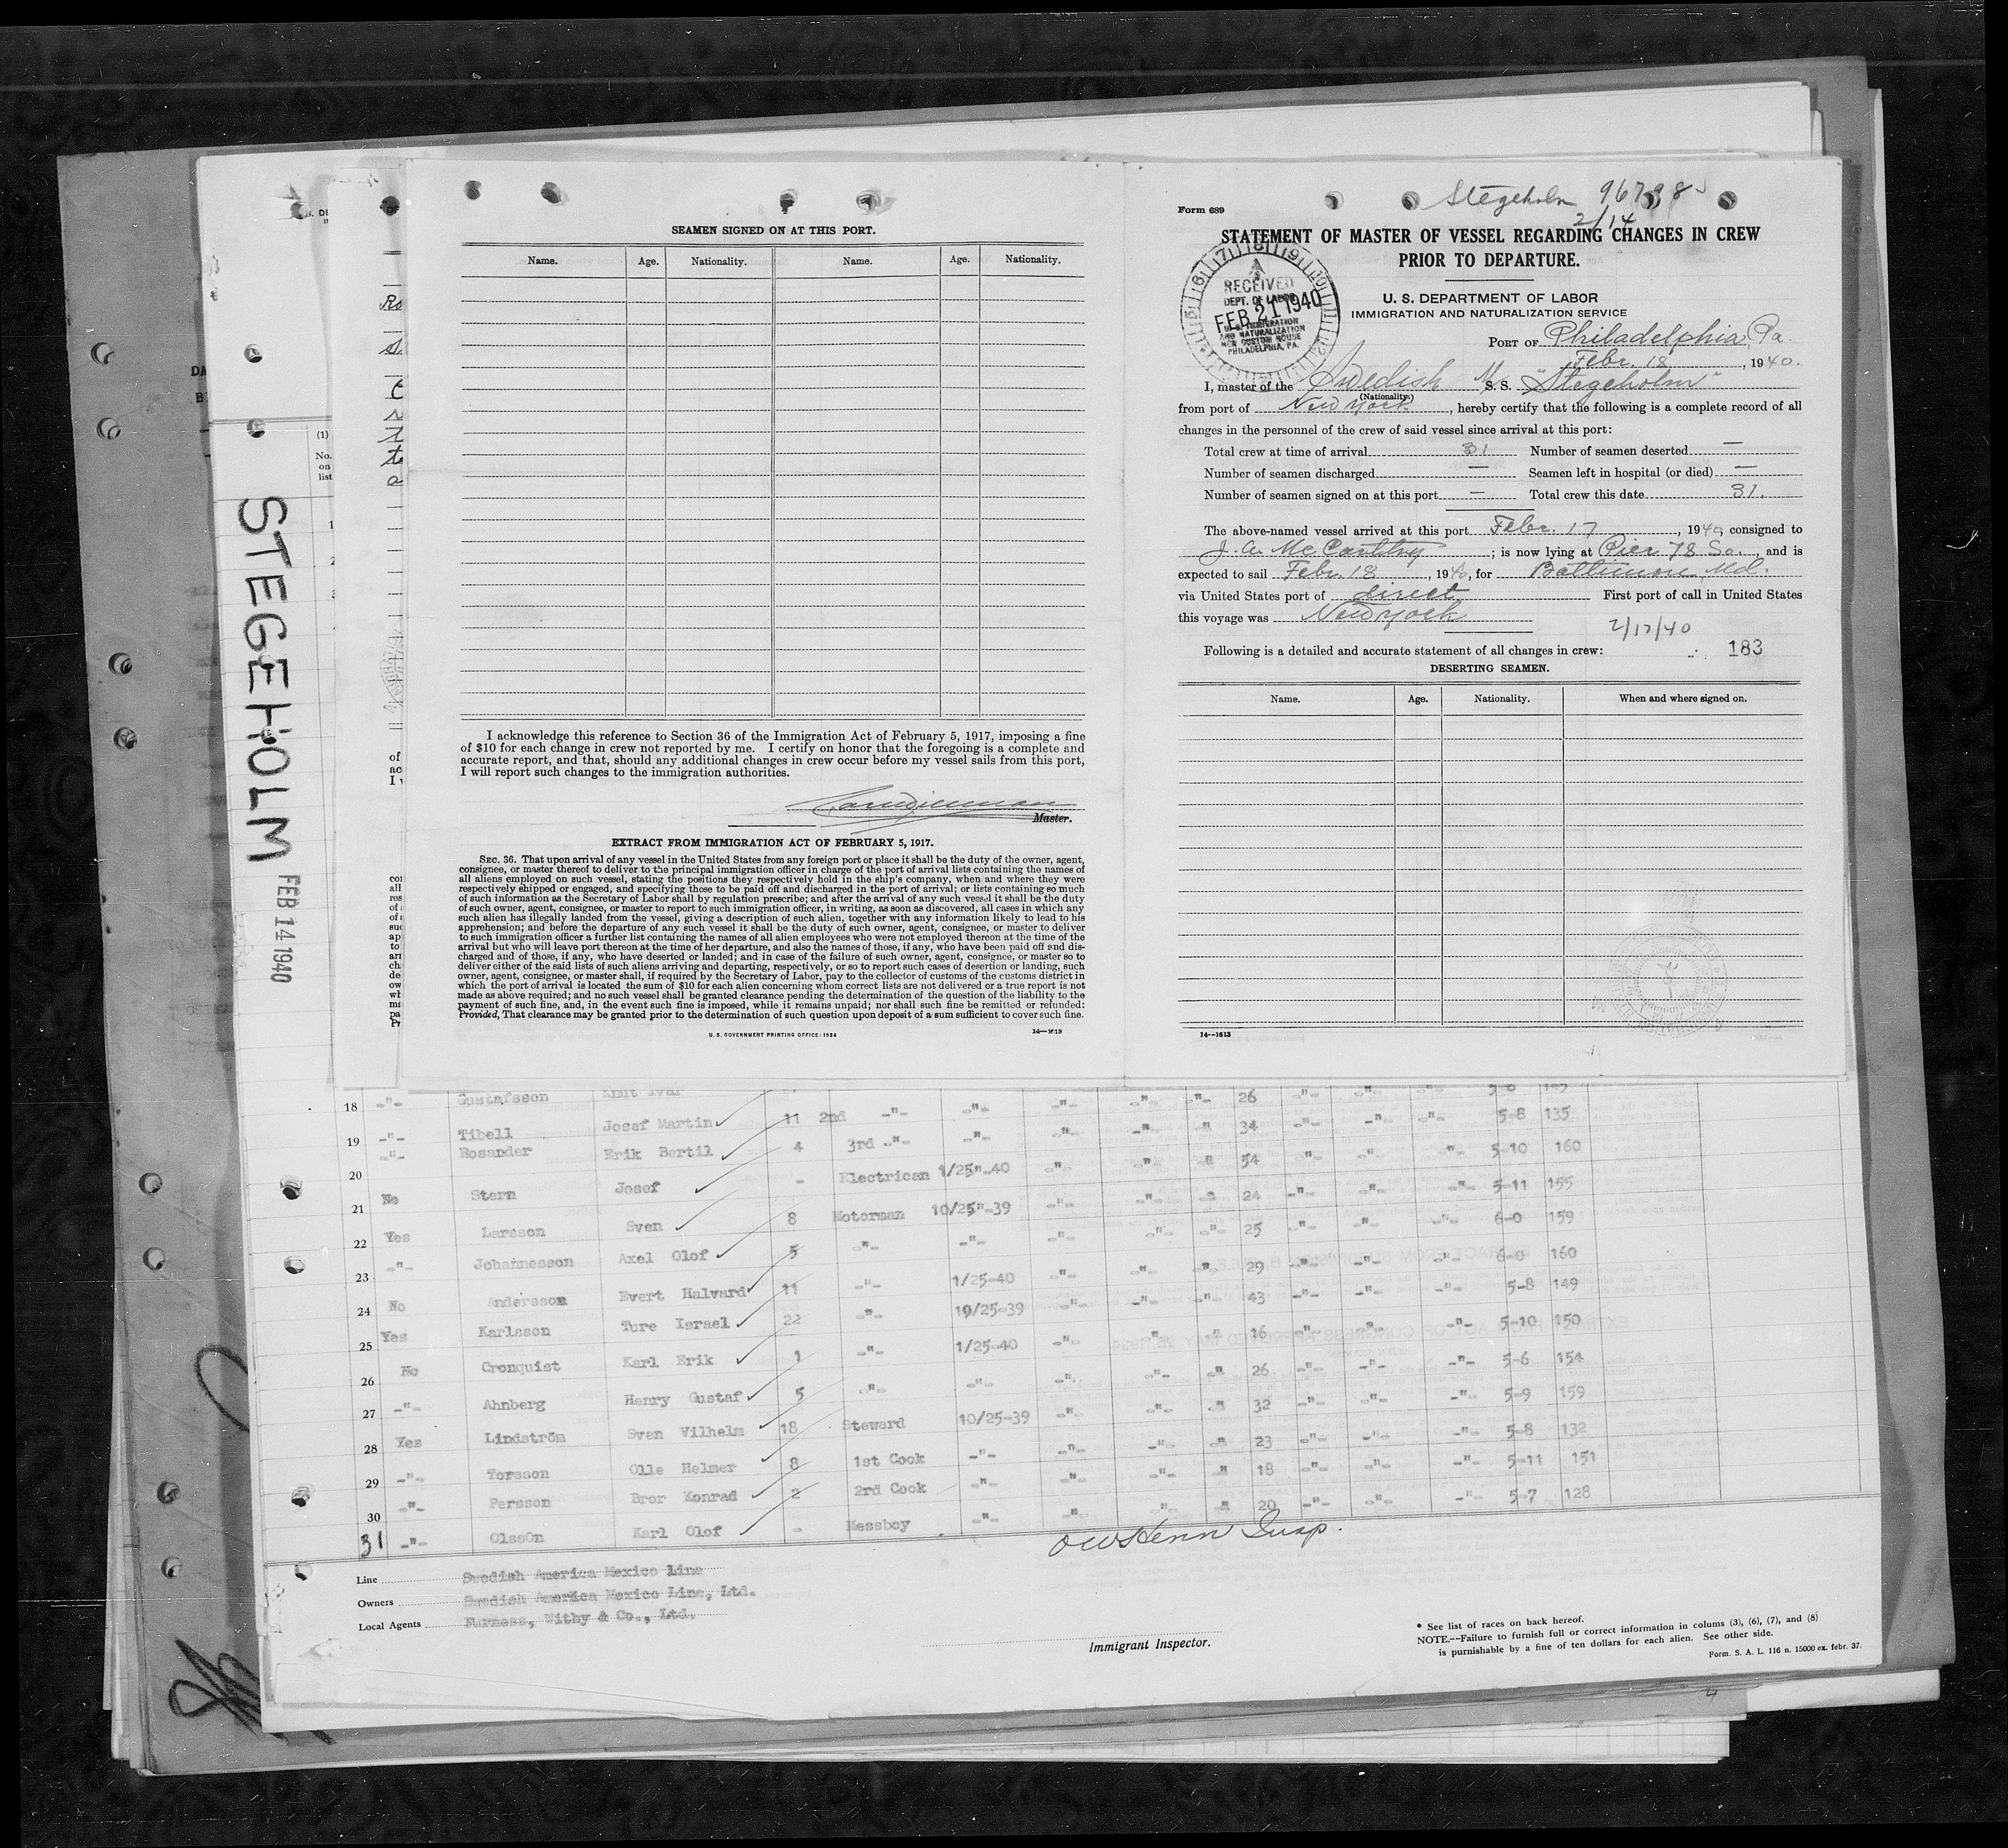 STEGEHOLM FEB 14 1940
SEAMEN SIGNED ON AT THIS PORT.
Name. Age. Nationality. Name. Age. Nationality.
I acknowledge this reference to Section 36 of the Immigration Act of February 5, 1917, imposing a fine
of $10 for each change in crew not reported by me. I certify on honor that the foregoing is a complete and
accurate report, and that, should any additional changes in crew occur before my vessel sails from this port,
I will report such changes to the immigration authorities.
Master.
EXTRACT FROM IMMIGRATION ACT OF FEBRUARY 5, 1917.
SEC. 36. That upon arrival of any vessel in the United States from any foreign port or place it shall be the duty of the owner, agent,
consignee, or master thereof to deliver to the principal immigration officer in charge of the port of arrival lists containing the names of
all aliens employed on such vessel, stating the positions they respectively hold in the ship's company, when and where they were
respectively shipped or engaged, and specifying those to be paid off and discharged in the port of arrival; or lists containing so much
of such information as the Secretary of Labor shall by regulation prescribe; and after the arrival of any such vessel it shall be the duty
of such owner, agent, consignee, or master to report to such immigration officer, in writing, as soon as discovered, all cases in which any
such alien has illegally landed from the vessel, giving a description of such alien, together with any information likely to lead to his
apprehension; and before the departure of any such vessel it shall be the duty of such owner, agent, consignee, or master to deliver
to such immigration officer a further list containing the names of all alien employees who were not employed thereon at the time of the
arrival but who will leave port thereon at the time of her departure, and also the names of those, if any, who have been paid off and dis-
charged and of those, if any, who have deserted or landed; and in case of the failure of such owner, agent, consignee, or master so to
deliver either of the said lists of such aliens arriving and departing, respectively, or so to report such cases of desertion or landing, such
owner, agent, consignee, or master shall, if required by the Secretary of Labor, pay to the collector of customs of the customs district in
which the port of arrival is located the sum of $10 for each alien concerning whom correct lists are not delivered or a true report is not
made as above required; and no such vessel shall be granted clearance pending the determination of the question of the liability to the
payment of such fine, and, in the event such fine is imposed, while it remains unpaid; nor shall such fine be remitted or refunded:
Provided, That clearance may be granted prior to the determination of such question upon deposit of a sum sufficient to cover such fine.
U. S. GOVERNMENT PRINTING OFFICE: 1934 14—1613
Form 689
Stegeholm 96798
2/14
STATEMENT OF MASTER OF VESSEL REGARDING CHANGES IN CREW
PRIOR TO DEPARTURE.
RECEIVED
DEPT. OF LABOR
FEB 21 1940
U.S. IMMIGRATION
AND NATURALIZATION
NEW CUSTOM HOUSE
PHILADELPHIA, PA.
U. S. DEPARTMENT OF LABOR
IMMIGRATION AND NATURALIZATION SERVICE
PORT OF Philadelphia, Pa.
Febr. 18, 1940.
I, master of the Swedish M/S. S. "Stegeholm"
(Nationality)
from port of New York, hereby certify that the following is a complete record of all
changes in the personnel of the crew of said vessel since arrival at this port:
Total crew at time of arrival 31 Number of seamen deserted —
Number of seamen discharged — Seamen left in hospital (or died) —
Number of seamen signed on at this port — Total crew this date 31.
The above-named vessel arrived at this port Febr. 17, 1940, consigned to
J. A. McCarthy; is now lying at Pier 78 So., and is
expected to sail Febr. 18, 1940, for Baltimore, Md.
via United States port of direct First port of call in United States
this voyage was New York
2/17/40
Following is a detailed and accurate statement of all changes in crew: 183
DESERTING SEAMEN.
Name. Age. Nationality. When and where signed on.
14—1613
18 -"- Gustafsson Knut Ivar 26
19 -"- Tibell Josef Martin 11 2nd -"- -"- -"- -"- -"- 34 -"- -"- -"- 5-8 135
20 -"- Rosander Erik Bertil 4 3rd -"- -"- -"- -"- -"- 54 -"- -"- -"- 5-10 160
21 No Stern Josef - Electrican 1/25"-40 -"- -"- -"- 24 -"- -"- -"- 5-11 155
22 Yes Larsson Sven 8 Motorman 10/25"-39 -"- -"- -"- 25 -"- -"- -"- 6-0 159
23 -"- Johannesson Axel Olof 5 -"- -"- -"- -"- -"- 29 -"- -"- -"- 6-0 160
24 No Andersson Evert Halvard 11 -"- 1/25-40 -"- -"- -"- 43 -"- -"- -"- 5-8 149
25 Yes Karlsson Ture Israel 22 -"- 10/25-39 -"- -"- -"- 16 -"- -"- -"- 5-10 150
26 No Cronquist Karl Erik 1 -"- 1/25-40 -"- -"- -"- 26 -"- -"- -"- 5-6 154
27 -"- Ahnberg Henry Gustaf 5 -"- -"- -"- -"- -"- 32 -"- -"- -"- 5-9 159
28 Yes Lindström Sven Vilhelm 18 Steward 10/25-39 -"- -"- -"- 23 -"- -"- -"- 5-8 132
29 -"- Torsson Olle Helmer 8 1st Cook -"- -"- -"- -"- 18 -"- -"- -"- 5-11 151
30 -"- Persson Bror Konrad 2 2rd Cook -"- -"- -"- -"- 20 -"- -"- -"- 5-7 128
31 -"- OlssOn Karl Olof - Messboy -"-
OWHenn Insp.
Line Swedish America Mexico Line
Owners Swedish America Mexico Line, Ltd.
Local Agents Furness, Withy & Co., Ltd.
Immigrant Inspector.
* See list of races on back hereof.
NOTE.—Failure to furnish full or correct information in colums (3), (6), (7), and (8)
is punishable by a fine of ten dollars for each alien. See other side.
Form. S. A. L. 116 a. 15000 ex. febr. 37.